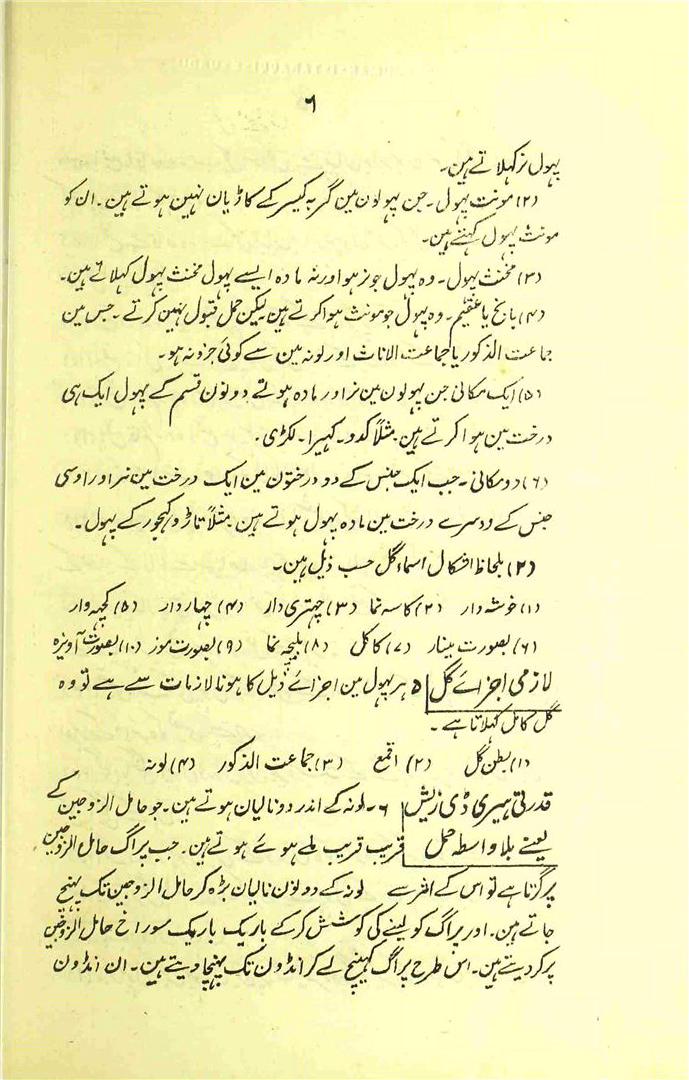 ۶
پہول نر کہلاتے ہین۔
(۲) مونث پہول۔ جن پہولون مین گربہ کیسر کے کاڑیان نہین ہوتے ہین۔ ان کو
مونث پہول کہتے ہین۔
(۳) مخنث پہول۔ وہ پہول جو نر ہو اور نہ مادہ ایسے پہول مخنث پہول کہلاتے ہین۔
(۴) بانج یا عقیم۔ وہ پہول جو مونث ہوا کرتے ہین لیکن حمل قبول نہین کرتے۔ جس مین
جماعت الذکور یا جماعت الاناث اور لونہ مین سے کوئی جزو نہ ہو۔
(۵) ایک مکانی جن پہولون مین نر اور مادہ ہوتے دونون قسم کے پہول ایک ہی
درخت مین ہوا کرتے ہین مثلاً کدو۔ کہیرا۔ لکڑی۔
(۶) دو مکانی۔ جب ایک جنس کے دو درختون مین ایک درخت مین نر اور اوسی
جنس کے دوسرے درخت مین مادہ پہول ہوتے ہین مثلاً تاڑ و کہجور کے پہول۔
(۲) بلحاظ اشکال اسماء گل حسب ذیل ہین۔
(۱) خوشہ دار (۲) کاسہ نما (۳) چہتری دار (۴) چہار دار (۵) گچہہ دار
(۶) بصورت مینار (۷) کاکل (۸) بلیچہ نما (۹) بصورت موز (۱۰) بصورت آویزہ
لازمی اجزائے گل ۵ ہر پہول مین اجزائے ذیل کا ہونا لازمات سے ہے تو وہ
گل کامل کہلاتا ہے۔
(۱) بطن گل (۲) اقمع (۳) جماعت الذکور (۴) لونہ
قدرتی ہیبری ڈی زیشن ۶۔ لونہ کے اندر دو نالیان ہوتے ہین۔ جو حامل الزوجین کے
یعنے بلا واسطہ حمل قریب قریب ملے ہوے ہوتے ہین۔ جب پراگ حامل الزوجین
پر گرتا ہے تو اس کے اثر سے لونہ کے دونون نالیان بڑہ کر حامل الزوجین تک پہنچ
جاتے ہین۔ اور پراگ کو لینے کی کوشش کر کے باریک باریک سوراخ حامل الزوجین
پر کر دیتے ہین۔ اس طرح پراگ کہینچ لے کر انڈون تک پہنچا دیتے ہین۔ ان انڈون